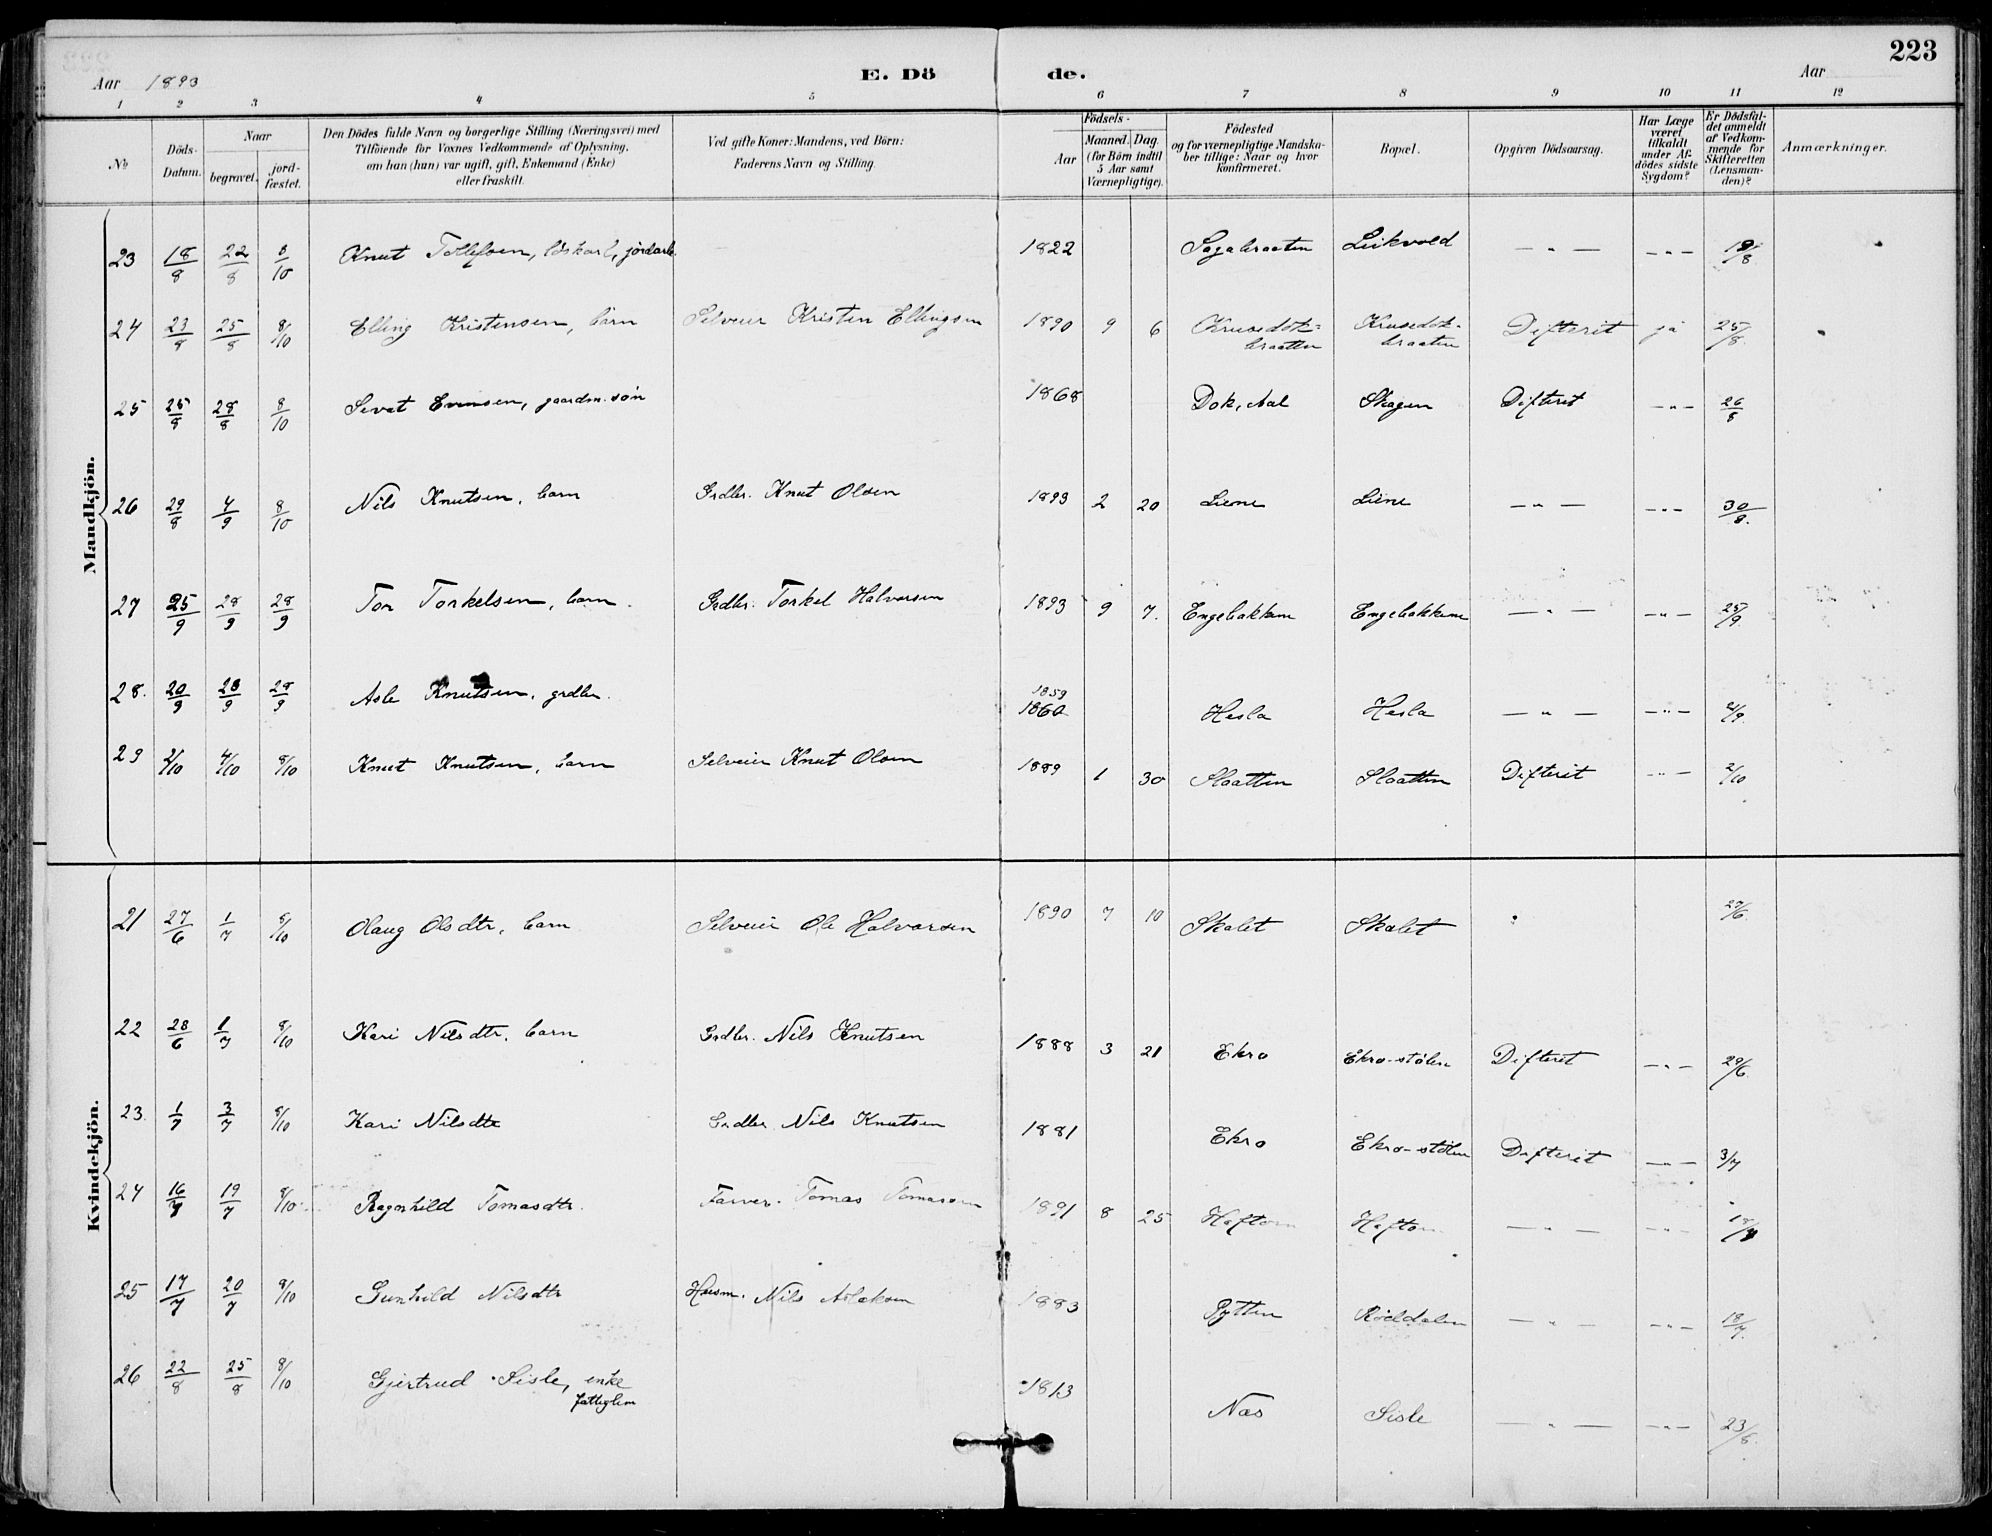 223
Aar 1893 E. Dö de. Aar
1 2 3 4 5 6 7 8 9 10 11 12
No
Döds-Datum.
Naar
begravet.
jord-fæstet.
Den Dödes fulde Navn og borgerlige Stilling (Næringsvei) med
Tilföiende for Voxnes Vedkommende af Oplysning,
om han (hun) var ugift, gift, Enkemand (Enke)
eller fraskilt.
Ved gifte Koner: Mandens, ved Börn:
Faderens Navn og Stilling.
Födsels-
Aar
Maaned. Dag.
(for Börn indtil
5 Aar samt
Værnepligtige).
Födested
og for værnepligtige Mandska-
ber tillige: Naar og hvor
konfirmeret.
Bopæl.
Opgiven Dödsaarsag.
Har Læge
været
tilkaldt
under Af-
dödes sidste
Sygdom?
Er Dödsfal-
det anmeldt
af Vedkom-
mende for
Skifteretten
(Lensman-
den)?
Anmærkninger.
Mandkjön.
23 18/8 22/8 8/10 Knut Tollefsen, löskarl, jordarb. 1822 Sagabraaten Leikvold — " — — " — 19/8
24 23/8 25/8 8/10 Elling Kristensen, barn Selveier Kristen Ellingsen 1890 9 6 Krusedok-braaten Krusedok-braaten Difterit ja 25/8
25 25/8 28/8 8/10 Sevat Evensen, gaardm. sön 1868 Dok, Aal Skagen Difterit — " — 26/8
26 29/8 4/9 8/10 Nils Knutsen, barn Grdbr. Knut Olsen 1893 2 20 Liene Liene — " — — " — 30/8.
27 25/9 28/9 28/9 Tor Torkelsen, barn. Grdbr. Torkel Halvorsen 1893 9 7. Engebakken Engebakken — " — — " — 25/9.
28. 20/9 28/9 28/9 Asle Knutsen, grdbr. 1859 1860 Hesla Hesla — " — — " — 21/9.
29 2/10 4/10 8/10 Knut Knutsen, barn Selveier Knut Olsen 1889 1 30 Slaatten Slaatten Difterit — " — 2/10
Kvindekjön.
21 27/6 1/7 8/10 Olaug Olsdtr, barn Selveier Ole Halvorsen 1890 7 10 Skalet Skalet 29/6.
22 28/6 1/7 8/10 Kari Nilsdtr, barn Grdbr. Nils Knutsen 1888 3 21 Ekro Ekro-stölen Difterit — " — 29/6.
23. 1/7 3/7 8/10 Kari Nilsdtr Grdbr Nils Knutsen 1881 Ekro Ekro-stölen Difterit — " — 3/7
24 16/7 19/7 8/10 Ragnhild Tomasdtr. Farver. Tomas Tomassen 1891 8 25 Haftorn Haftorn — " — — " — 18/7
25 17/7 20/7 8/10 Gunhild Nilsdtr Husm. Nils Aslaksen 1883 Pytten Röildalen — " — — " — 18/7.
26 22/8 25/8 8/10 Gjertrud Sisle, enke 1813 Næs Sisle — " — — " — 23/8.
fattiglem